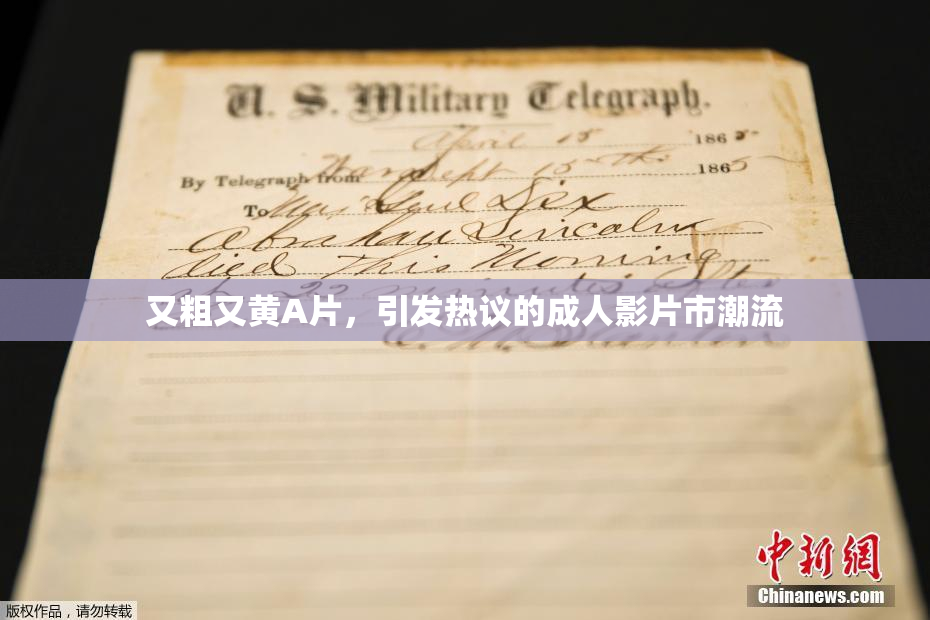 U. S. Military Telegraph.
April 15 1865-
By Telegraph from War Dept 15th 1865
To Maj Genl Dix
Abraham Lincoln
died This Morning
at 22 minutes after
又粗又黄A片，引发热议的成人影片市潮流
E. M. Stanton
中新网
Chinanews.com
版权作品，请勿转载